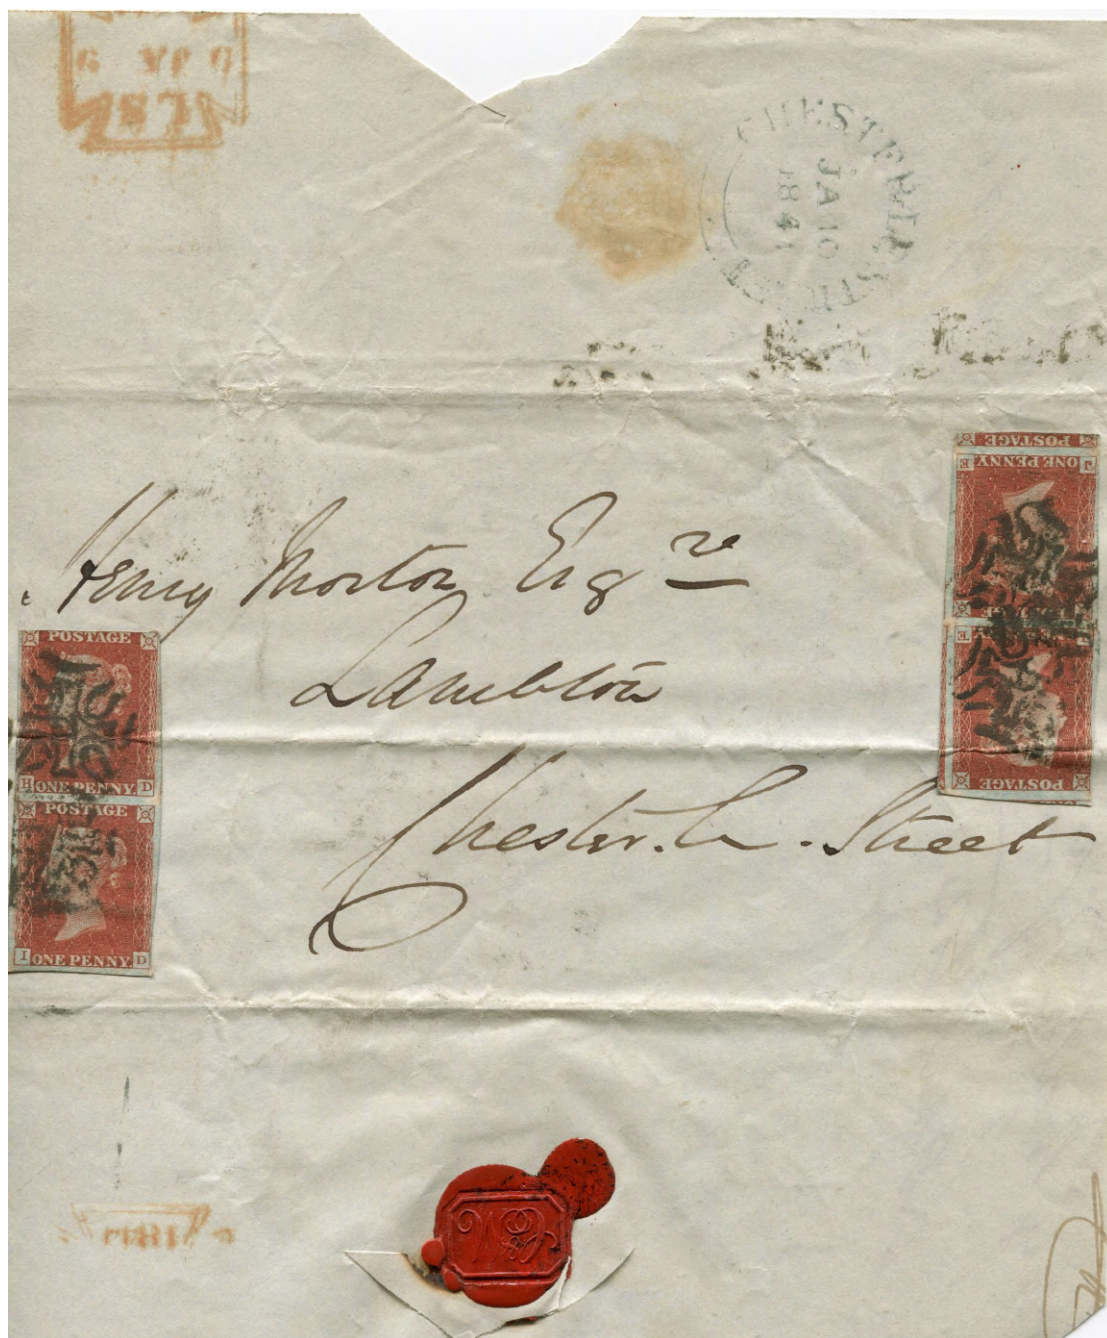 CHESTER LE STREET
JA 10
1841
Henry Morton Esqre
Lambton
Chester. Le. Street
POSTAGE
H ONE PENNY D
POSTAGE
I ONE PENNY D
POSTAGE
J ONE PENNY E
POSTAGE